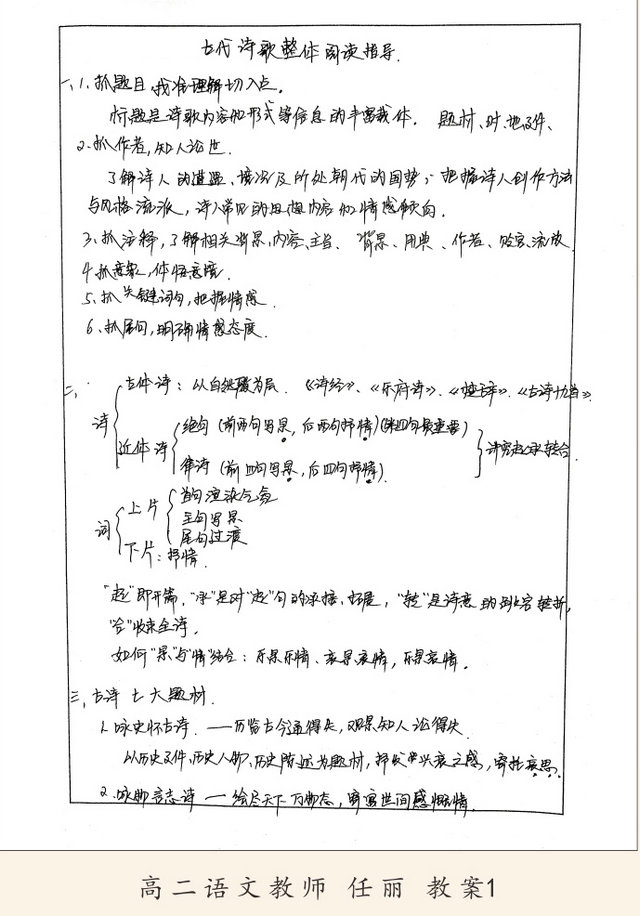 古代诗歌整体阅读指导.
一、1.抓题目,找准理解切入点。
标题是诗歌内容和形式等信息的丰富载体. 题材、时、地、事件、
2.抓作者,知人论世.
了解诗人的遭遇、境况及所处朝代的国势;把握诗人创作方法
与风格流派,诗人常见的思想内容和情感倾向.
3.抓注释,了解相关背景、内容、主旨、背景、用典、作者、贬官、流放
4.抓意象,体悟意境.
5.抓关键词句,把握情感.
6.抓尾句,明确情感态度.
二、
诗
古体诗:以自然段为层.《诗经》、《乐府诗》、《楚辞》、《古诗十九首》.
近体诗
绝句(前两句写景,后两句抒情)(第四句最重要)
律诗(前四句写景,后四句抒情).
讲究起承转合.
词
上片
首句渲染气氛
主句写景
尾句过渡
下片:抒情.
"起"即开篇,"承"是对"起"句的承接、拓展,"转"是诗意的到内容转折,
"合"收束全诗.
如何"景"与"情"结合:乐景乐情、哀景哀情,乐景哀情.
三、古诗七大题材.
1.咏史怀古诗.——历览古今通得失,观景知人论得失.
以历史事件、历史人物、历史陈迹为题材,抒发兴衰之感,寄托哀思.
2.咏物言志诗——绘尽天下万物态,寄寓世间感慨情.
高二语文教师 任丽 教案1